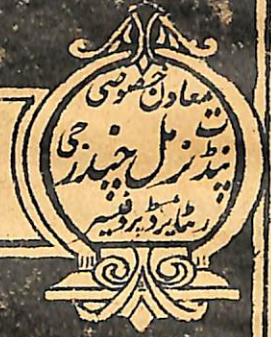 معاون خصوصی
پنڈت نرمل چندر جی
ریٹائرڈ پروفیسر